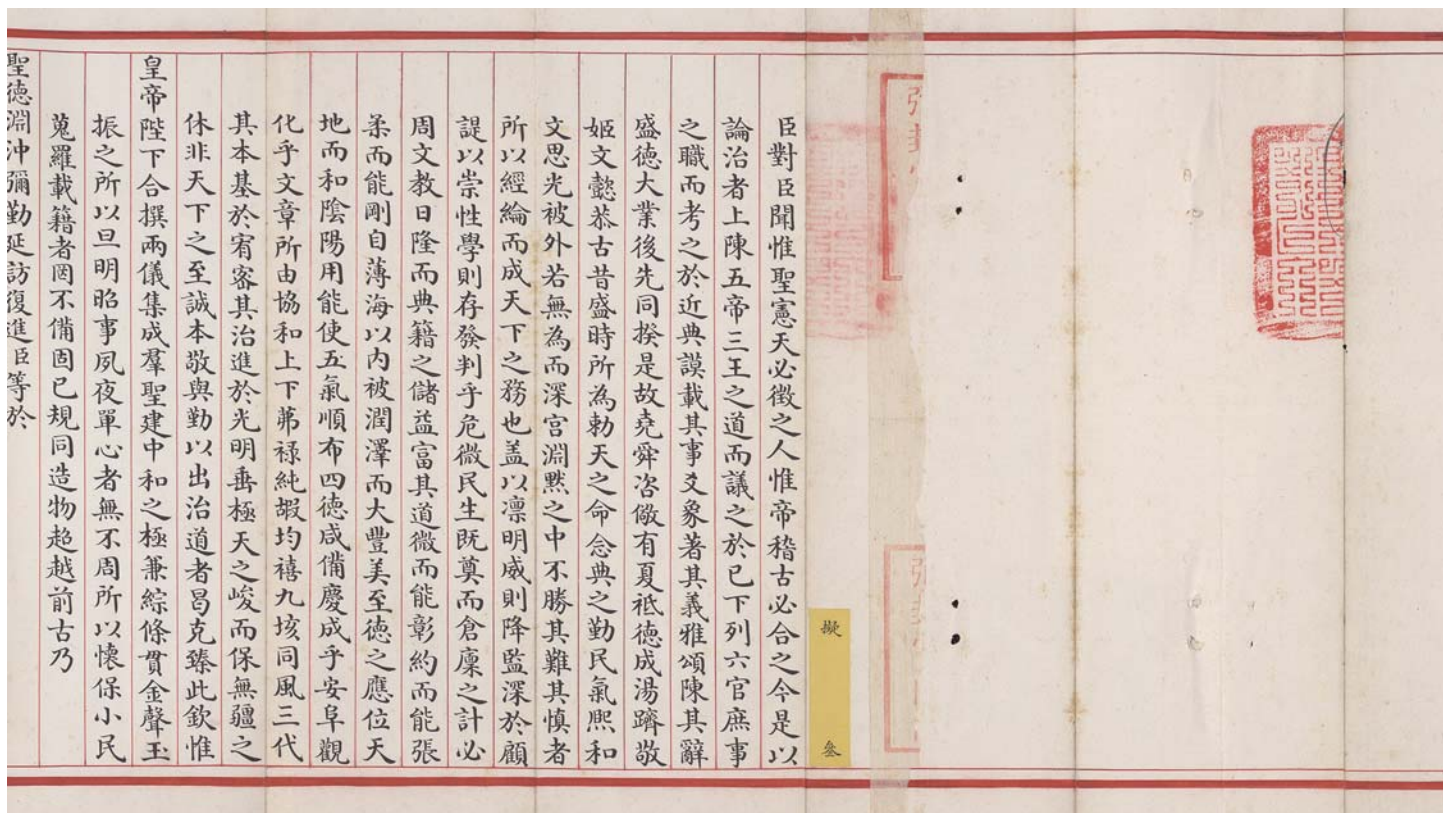 臣對臣聞惟聖憲天必徵之人惟帝稽古必合之今是以
論治者上陳五帝三王之道而議之於己下列六官庶事
之職而考之於近典謨載其事爻象著其義雅頌陳其辭
盛德大業後先同揆是故堯舜咨儆有夏祗德成湯躋敬
姬文懿恭古昔盛時所為勅天之命念典之勤民氣熙和
文思光被外若無為而深宮淵默之中不勝其難其慎者
所以經綸而成天下之務也盖以凛明威則降監深於顧
諟以崇性學則存發判乎危微民生既奠而倉廩之計必
周文教日隆而典籍之儲益富其道微而能彰約而能張
柔而能剛自薄海以內被潤澤而大豐美至德之應位天
地而和陰陽用能使五氣順布四德咸備慶成乎安阜觀
化乎文章所由協和上下茀祿純嘏均禧九垓同風三代
其本基於宥密其治進於光明垂極天之峻而保無疆之
休非天下之至誠本敬與勤以出治道者曷克臻此欽惟
皇帝陛下合撰兩儀集成羣聖建中和之極兼綜條貫金聲玉
振之所以旦明昭事夙夜單心者無不周所以懷保小民
蒐羅載籍者罔不備固已規同造物超越前古乃
聖德淵沖彌勤延訪復進臣等於
擬 叄